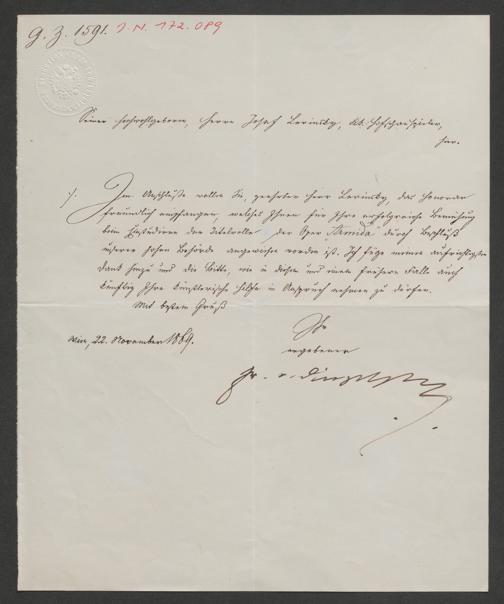 G. Z. 1591. I. N. 172.089
Seiner Hochwohlgeboren, Herrn Josef Lewinsky, k.k. Hofschauspieler,
hier.
./. Im Anschluße wollen Sie, geehrter Herr Lewinsky, das Honorar
freundlich empfangen, welches Ihnen für Ihre erfolgreiche Bemühung
beim Einstudiren der Titelrolle der Oper "Armida" durch Beschluß
unserer hohen Behörde angewiesen worden ist. Ich füge meinen aufrichtigsten
Dank hinzu und die Bitte, wie in diesem und einem frühern Falle auch
künftig Ihre künstlerische Hilfe in Anspruch nehmen zu dürfen.
Mit bestem Gruß
Wien, 22. November 1869.
Ihr
ergebener
Fr. v. Dingelstedt